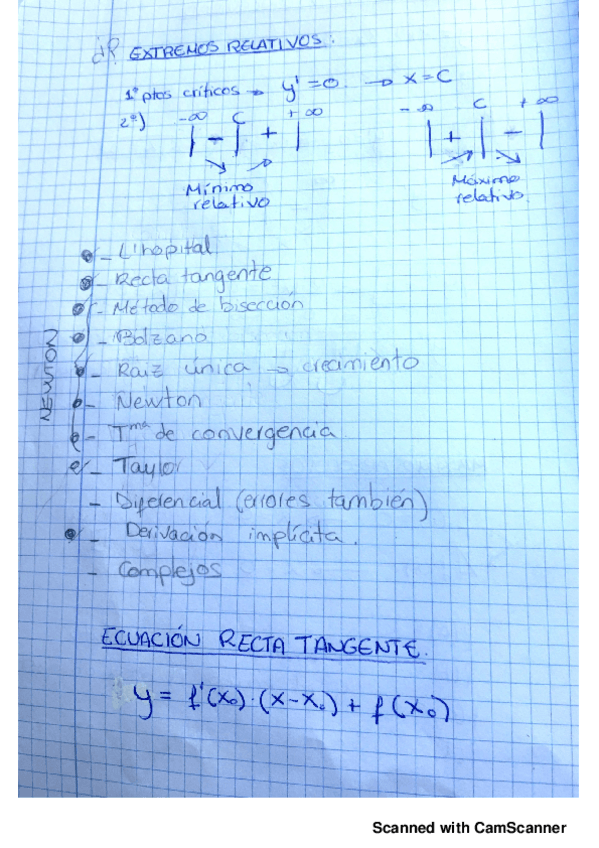 EXTREMOS RELATIVOS:
1º ptos críticos → y' = 0. → x = c
2º)
-∞ c +∞ -∞ c +∞
| - | + | | + | - |
↘ ↗ ↗ ↘
Mínimo relativo
Máximo relativo.
- L'hopital
- Recta tangente
- Método de bisección
- Bolzano
- Raiz única → crecimiento
- Newton
- Tma de convergencia
- Taylor
- Diferencial (errores también)
- Derivación implícita.
- Complejos
ECUACIÓN RECTA TANGENTE.
y = f'(x₀)·(x-x₀) + f(x₀)
Scanned with CamScanner